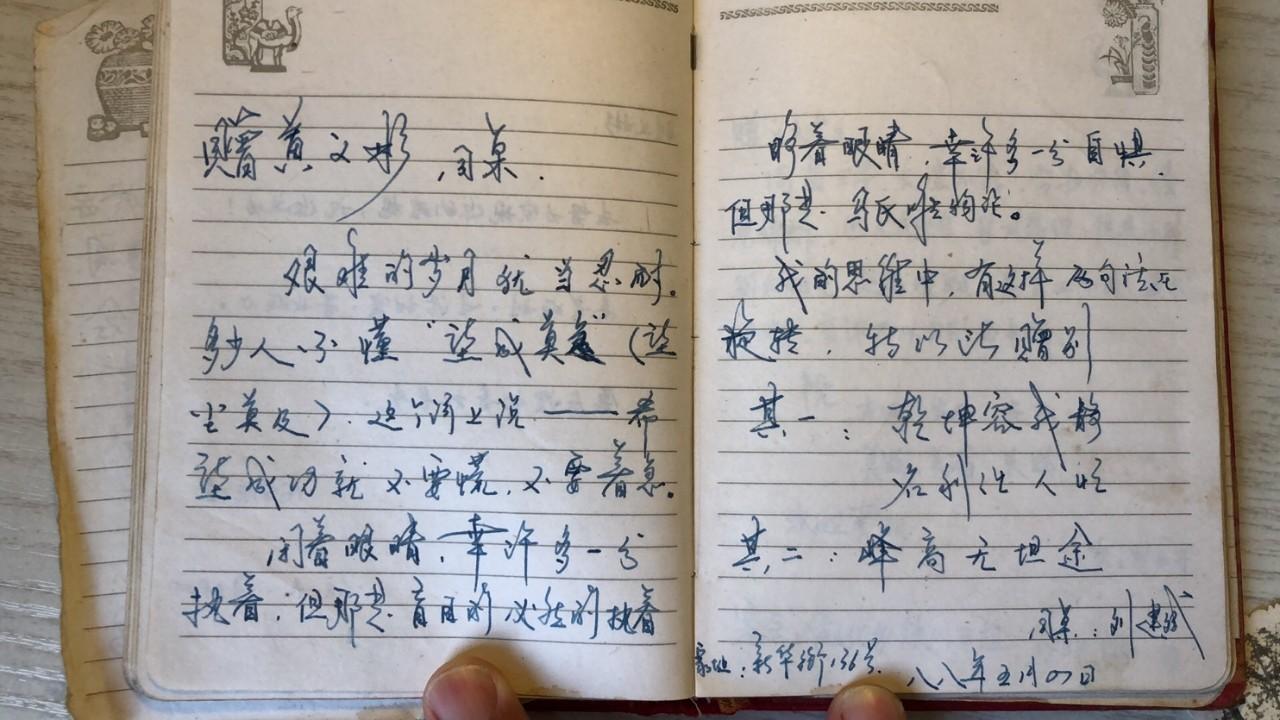 赠黄文彬同桌.
艰难的岁月就当忍耐。
多少人不懂"望成莫急"(望
莫及).这个词上说——希
望成功就不要慌,不要着急。
闭着眼睛,幸许多一分
执着,但那是盲目的必然的执着
睁着眼睛,幸许多一分自惧.
但那是马氏唯物论。
我的思维中,有这样两句话在
旋转,特以此赠别
其一:乾坤容我静
名利任人忙
其二:峰高无坦途
同桌:刘建
家址:新华街136号
八八年五月四日